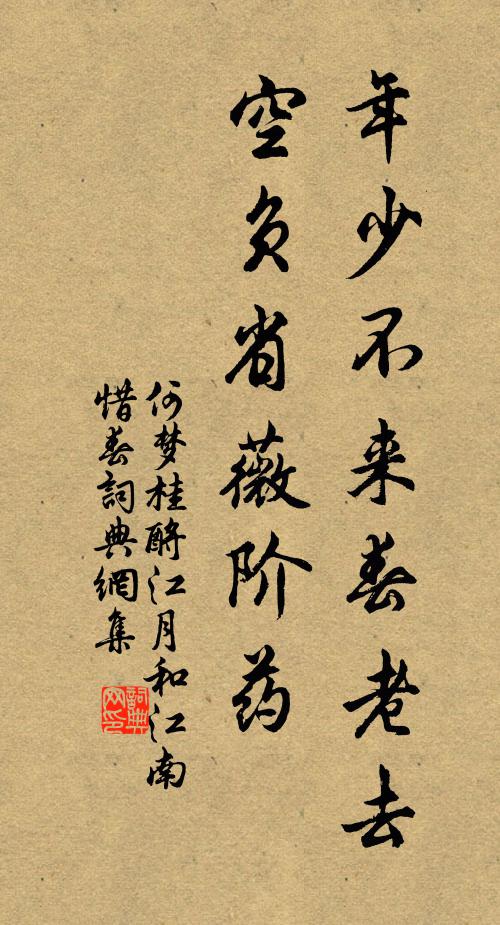 年少不来春老去
空负省薇阶药
何梦桂酹江月和江南
惜春詞典網集
詞典网印